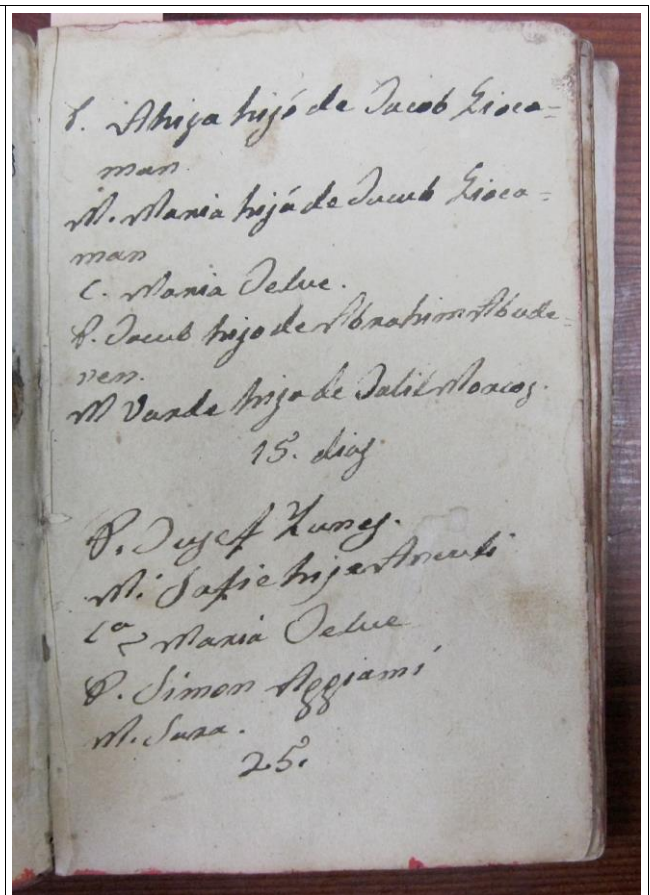 S. Ahija hijo de Jacob Gioca=
man
M. Maria hija de Jacub Gioca=
man
C. Maria Delve.
P. Jacub hijo de Abrahim Abude=
nen.
M Varde hija de Dalil Morcos.
15. dias.
P. Jusef Yunes.
M. Safie hija
Ca Maria Delve
P. Simon Aggiami
M. Sara.
25.